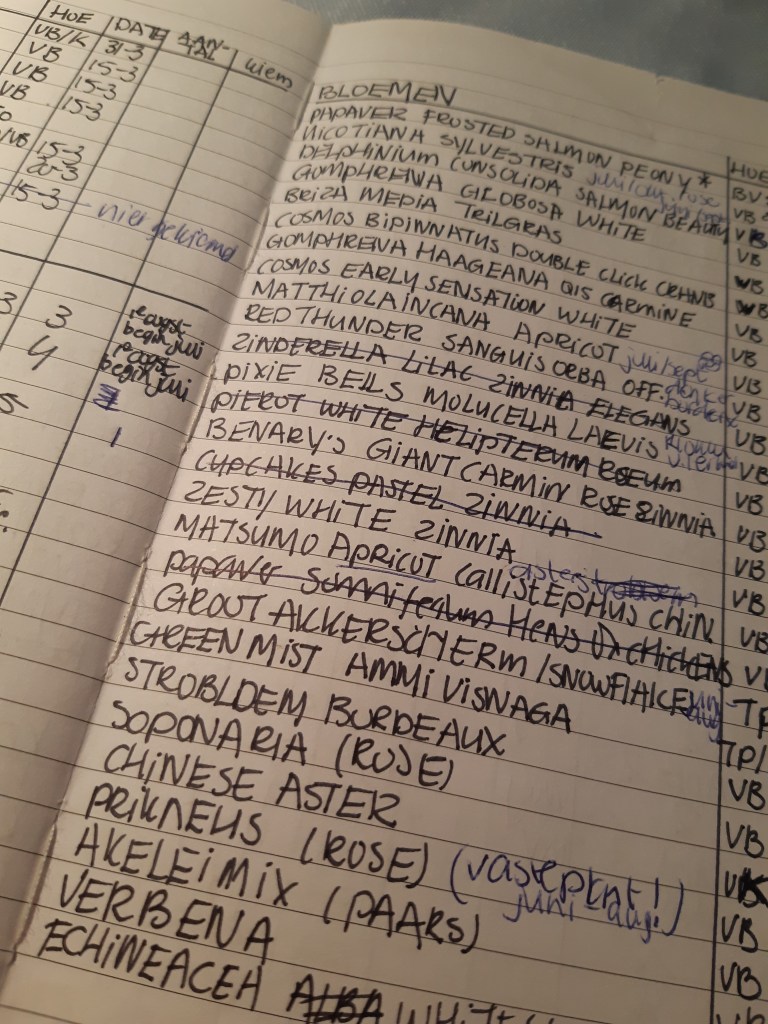 HOE DATE AAN-TAL kiem
VB/K 31-3
VB 15-3
VB 15-3
VB 15-3
15-3
20-3
15-3 - niet gekiemd
3 3 begin juni
4 begin juni
5
1
BLOEMEN HOE
PAPAVER FROSTED SALMON PEONY *
NICOTIANA SYLVESTRIS
DELPHINIUM CONSOLIDA SALMON BEAUTY VB
GOMPHRENA GLOBOSA WHITE VB
BRIZA MEDIA TRILGRAS VB
COSMOS BIPINNATUS DOUBLE CLICK CRANB VB
GOMPHRENA HAAGEANA QIS CARMINE VB
COSMOS EARLY SENSATION WHITE VB
MATTHIOLA INCANA APRICOT juli/sept VB
RED THUNDER SANGUISORBA OFF. VB
ZINDERELLA LILAC ZINNIA ELEGANS VB
PIXIE BELLS MOLUCELLA LAEVIS VB
PIEROT WHITE HELIPTERUM ROSEUM VB
BENARY'S GIANT CARMIN ROSE ZINNIA VB
CUPCAKES PASTEL ZINNIA VB
ZESTY WHITE ZINNIA VB
MATSUMO APRICOT CALLISTEPHUS CHIN VB
asters
PAPAVER Somniferum Hens & CHICKENS
GROOT AKKERSCHERM / SNOWFLAKE TP
GREEN MIST AMMI VISNAGA TP/
STROBLOEM BORDEAUX VB
SOPONARIA (ROSE) VB
CHINESE ASTER
PRIKNEUS (ROSE) (vasteplnt!) VB
juni aug!
AKELEI MIX (PAARS) VB
VERBENA
ECHINEACEA ALBA WHITE